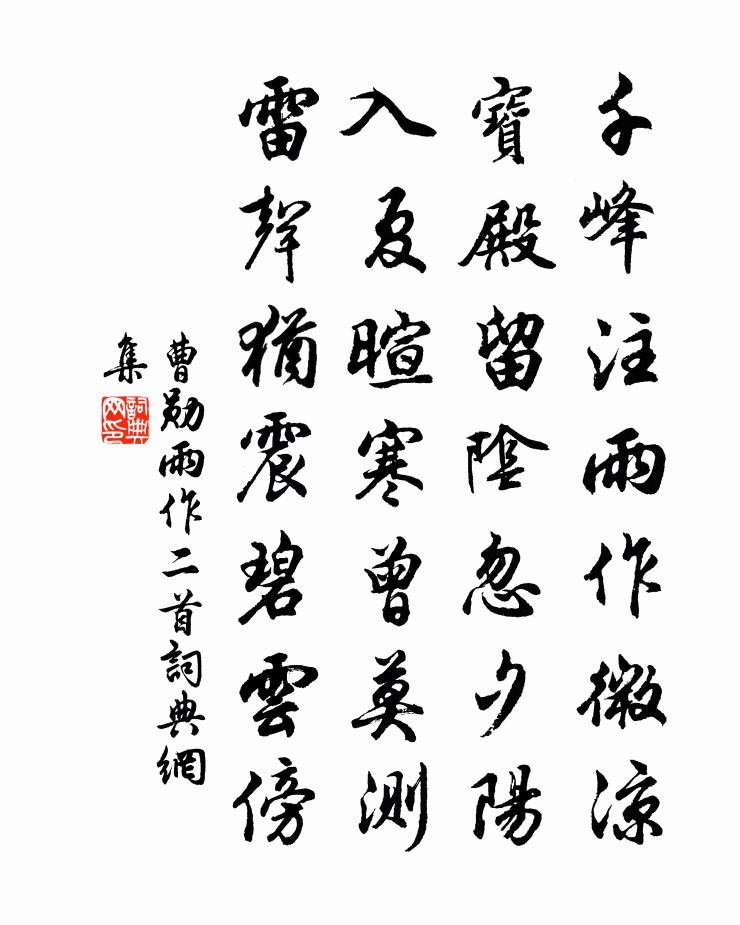 千峰注雨作微涼
寶殿留陰忽夕陽
入夏暄寒曾莫測
雷聲猶震碧雲傍
曹勛雨作二首詞典網
集
詞典网印